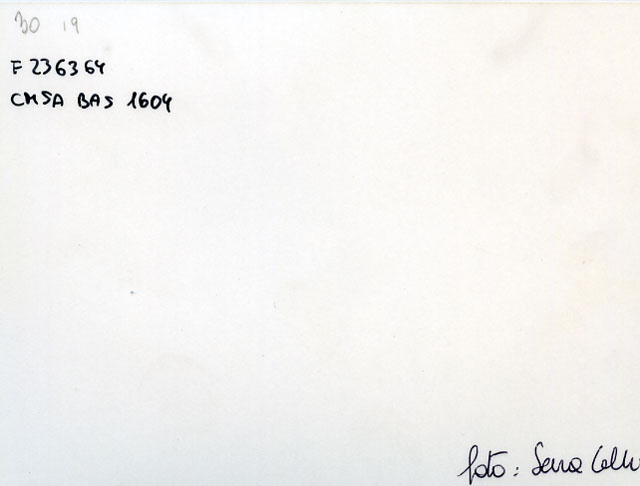 30 19
F 236364
CMSA BAS 1604
foto: Serra